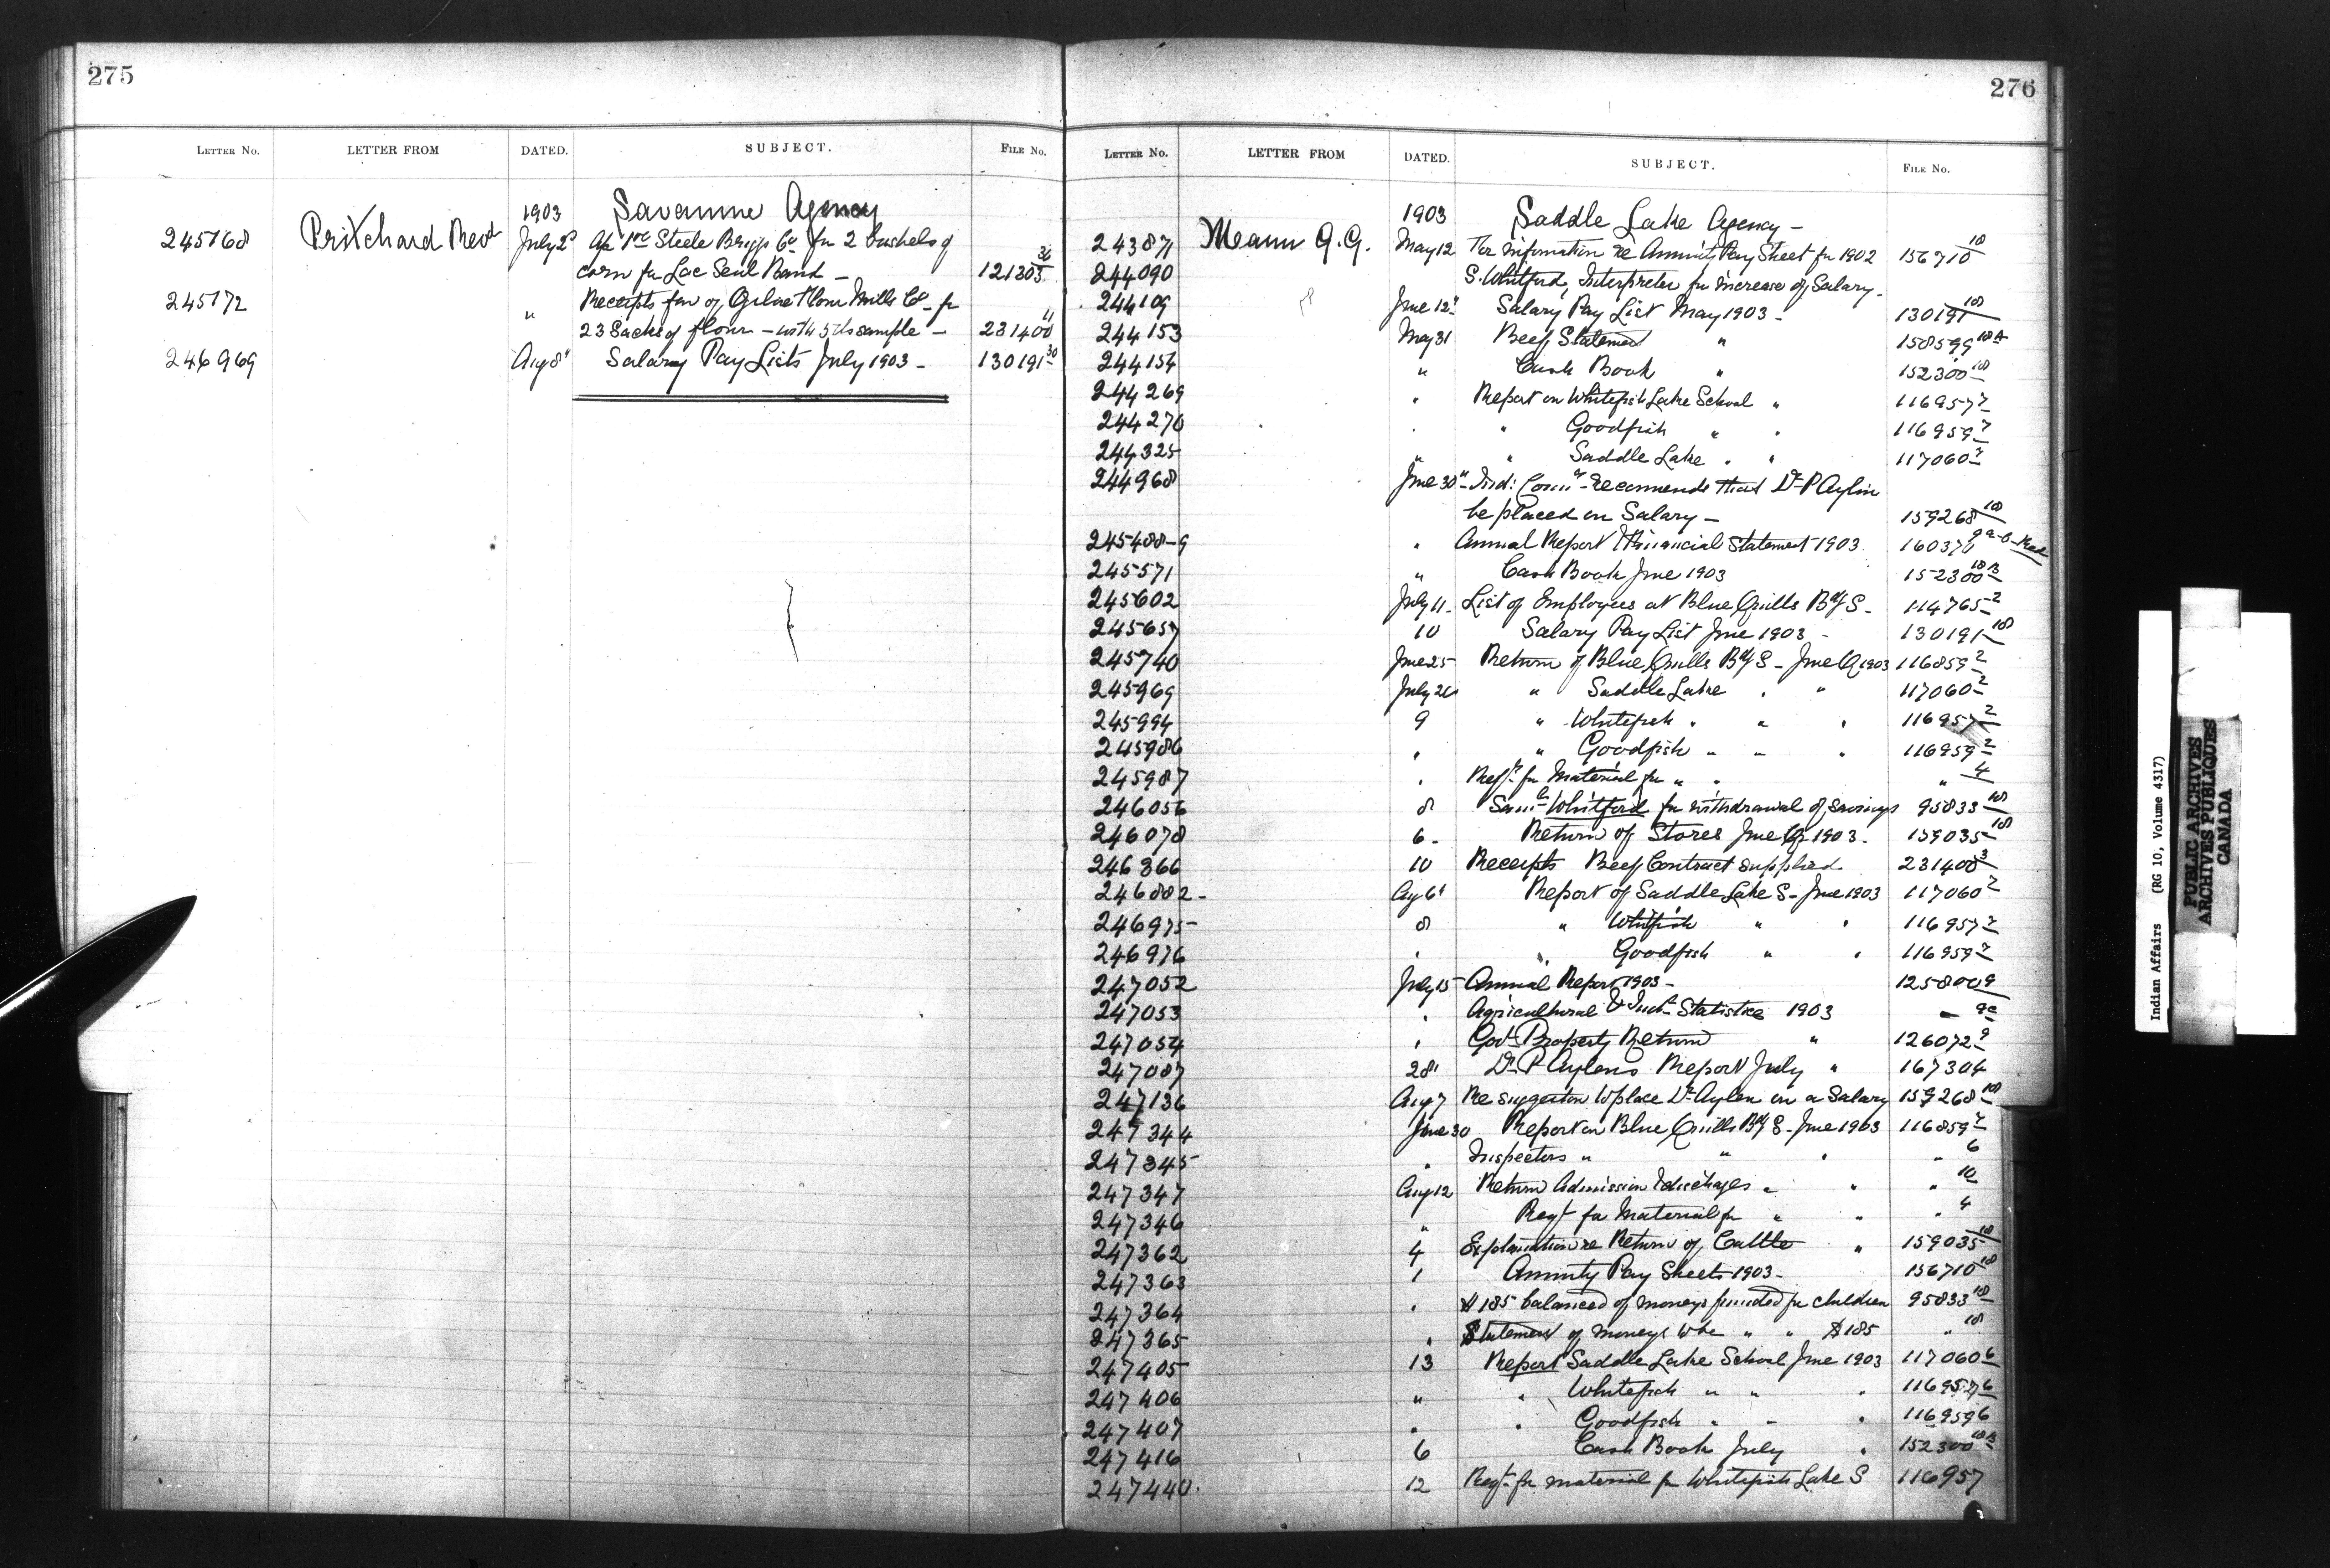 275
LETTER No. LETTER FROM DATED. SUBJECT. FILE No.
1903 Savanne Agency
245168 Pritchard Revd July 2 Steele Briggs Co for 2 bushels of
corn for Lac Seul Band — 121303 30
245172 " Receipts Mills Co for
23 Sacks of flour — with sample — 231400 11
246969 Aug 8 Salary Pay Lists July 1903 — 130191 30
276
LETTER No. LETTER FROM DATED. SUBJECT. FILE No.
1903 Saddle Lake Agency —
243871 Mann G.G. May 12 For information re Annuity Pay Sheet for 1902 156710 18
244090 S. Whitford, Interpreter for increase of Salary —
244109 June 12 Salary Pay List May 1903 — 130191 18
244153 May 31 Beef Statement " 158599 18A
244154 " Cash Book " 152300 18
244269 " Report on Whitefish Lake School " 116957 7
244270 " " Goodfish " " 116959 7
244325 " " Saddle Lake " " 117060 7
244968 June 30 Ind: Comr recommends that Dr P Aylen
be placed on Salary — 159268 18
245488-9 " Annual Report & Financial Statement 1903 160370
245571 " Cash Book June 1903 152300 18B
245602 July 11 List of Employees at Blue Quills Bdg S — 114765 2
245657 10 Salary Pay List June 1903 — 130191 18
245740 June 25 Return of Blue Quills Bdg S — June Q 1903 116859 2
245969 July 20 " Saddle Lake " " 117060 2
245994 9 " Whitefish " " " 116957 2
245986 " " Goodfish " " " 116959 2
245987 " Reqn for Material for " " " 4
246056 8 Saml Whitford for withdrawal of savings 95833 18
246078 6 Return of Stores June Q 1903 — 159035 18
246366 10 Receipts Beef Contract supplied 231400 3
246882 Aug 6 Report of Saddle Lake S — June 1903 117060 7
246975 8 " Whitefish " " 116957 7
246976 " " Goodfish " " 116959 7
247052 July 15 Annual Report 1903 — 125800 9
247053 " Agricultural & Indl Statistics 1903 — 9a
247054 " Govt Property Return " 126072 9
247087 28 Dr P Aylens Report July " 167304
247136 Aug 7 Re suggestion to place Dr Aylen on a Salary 159268 18
247344 June 30 Report on Blue Quills Bdg S — June 1903 116859 7
247345 " Inspectors " " " " 6
247347 Aug 12 Return Admission & discharges " " " 10
247346 " Reqn for Material for " " " 4
247362 4 Explanation re Return of Cattle " 159035 18
247363 1 Annuity Pay Sheets 1903 — 156710 18
247364 " $185 balance of moneys funded for children 95833 18
247365 " Statement of moneys to be " " $185 " 18
247405 13 Report Saddle Lake School June 1903 117060 6
247406 " " Whitefish " " " 116957 6
247407 " " Goodfish " " " 116959 6
247416 6 Cash Book July " 152300 18B
247440 12 Reqn for material for Whitefish Lake S 116957
Indian Affairs (RG 10, Volume 4317)
PUBLIC ARCHIVES
ARCHIVES PUBLIQUES
CANADA